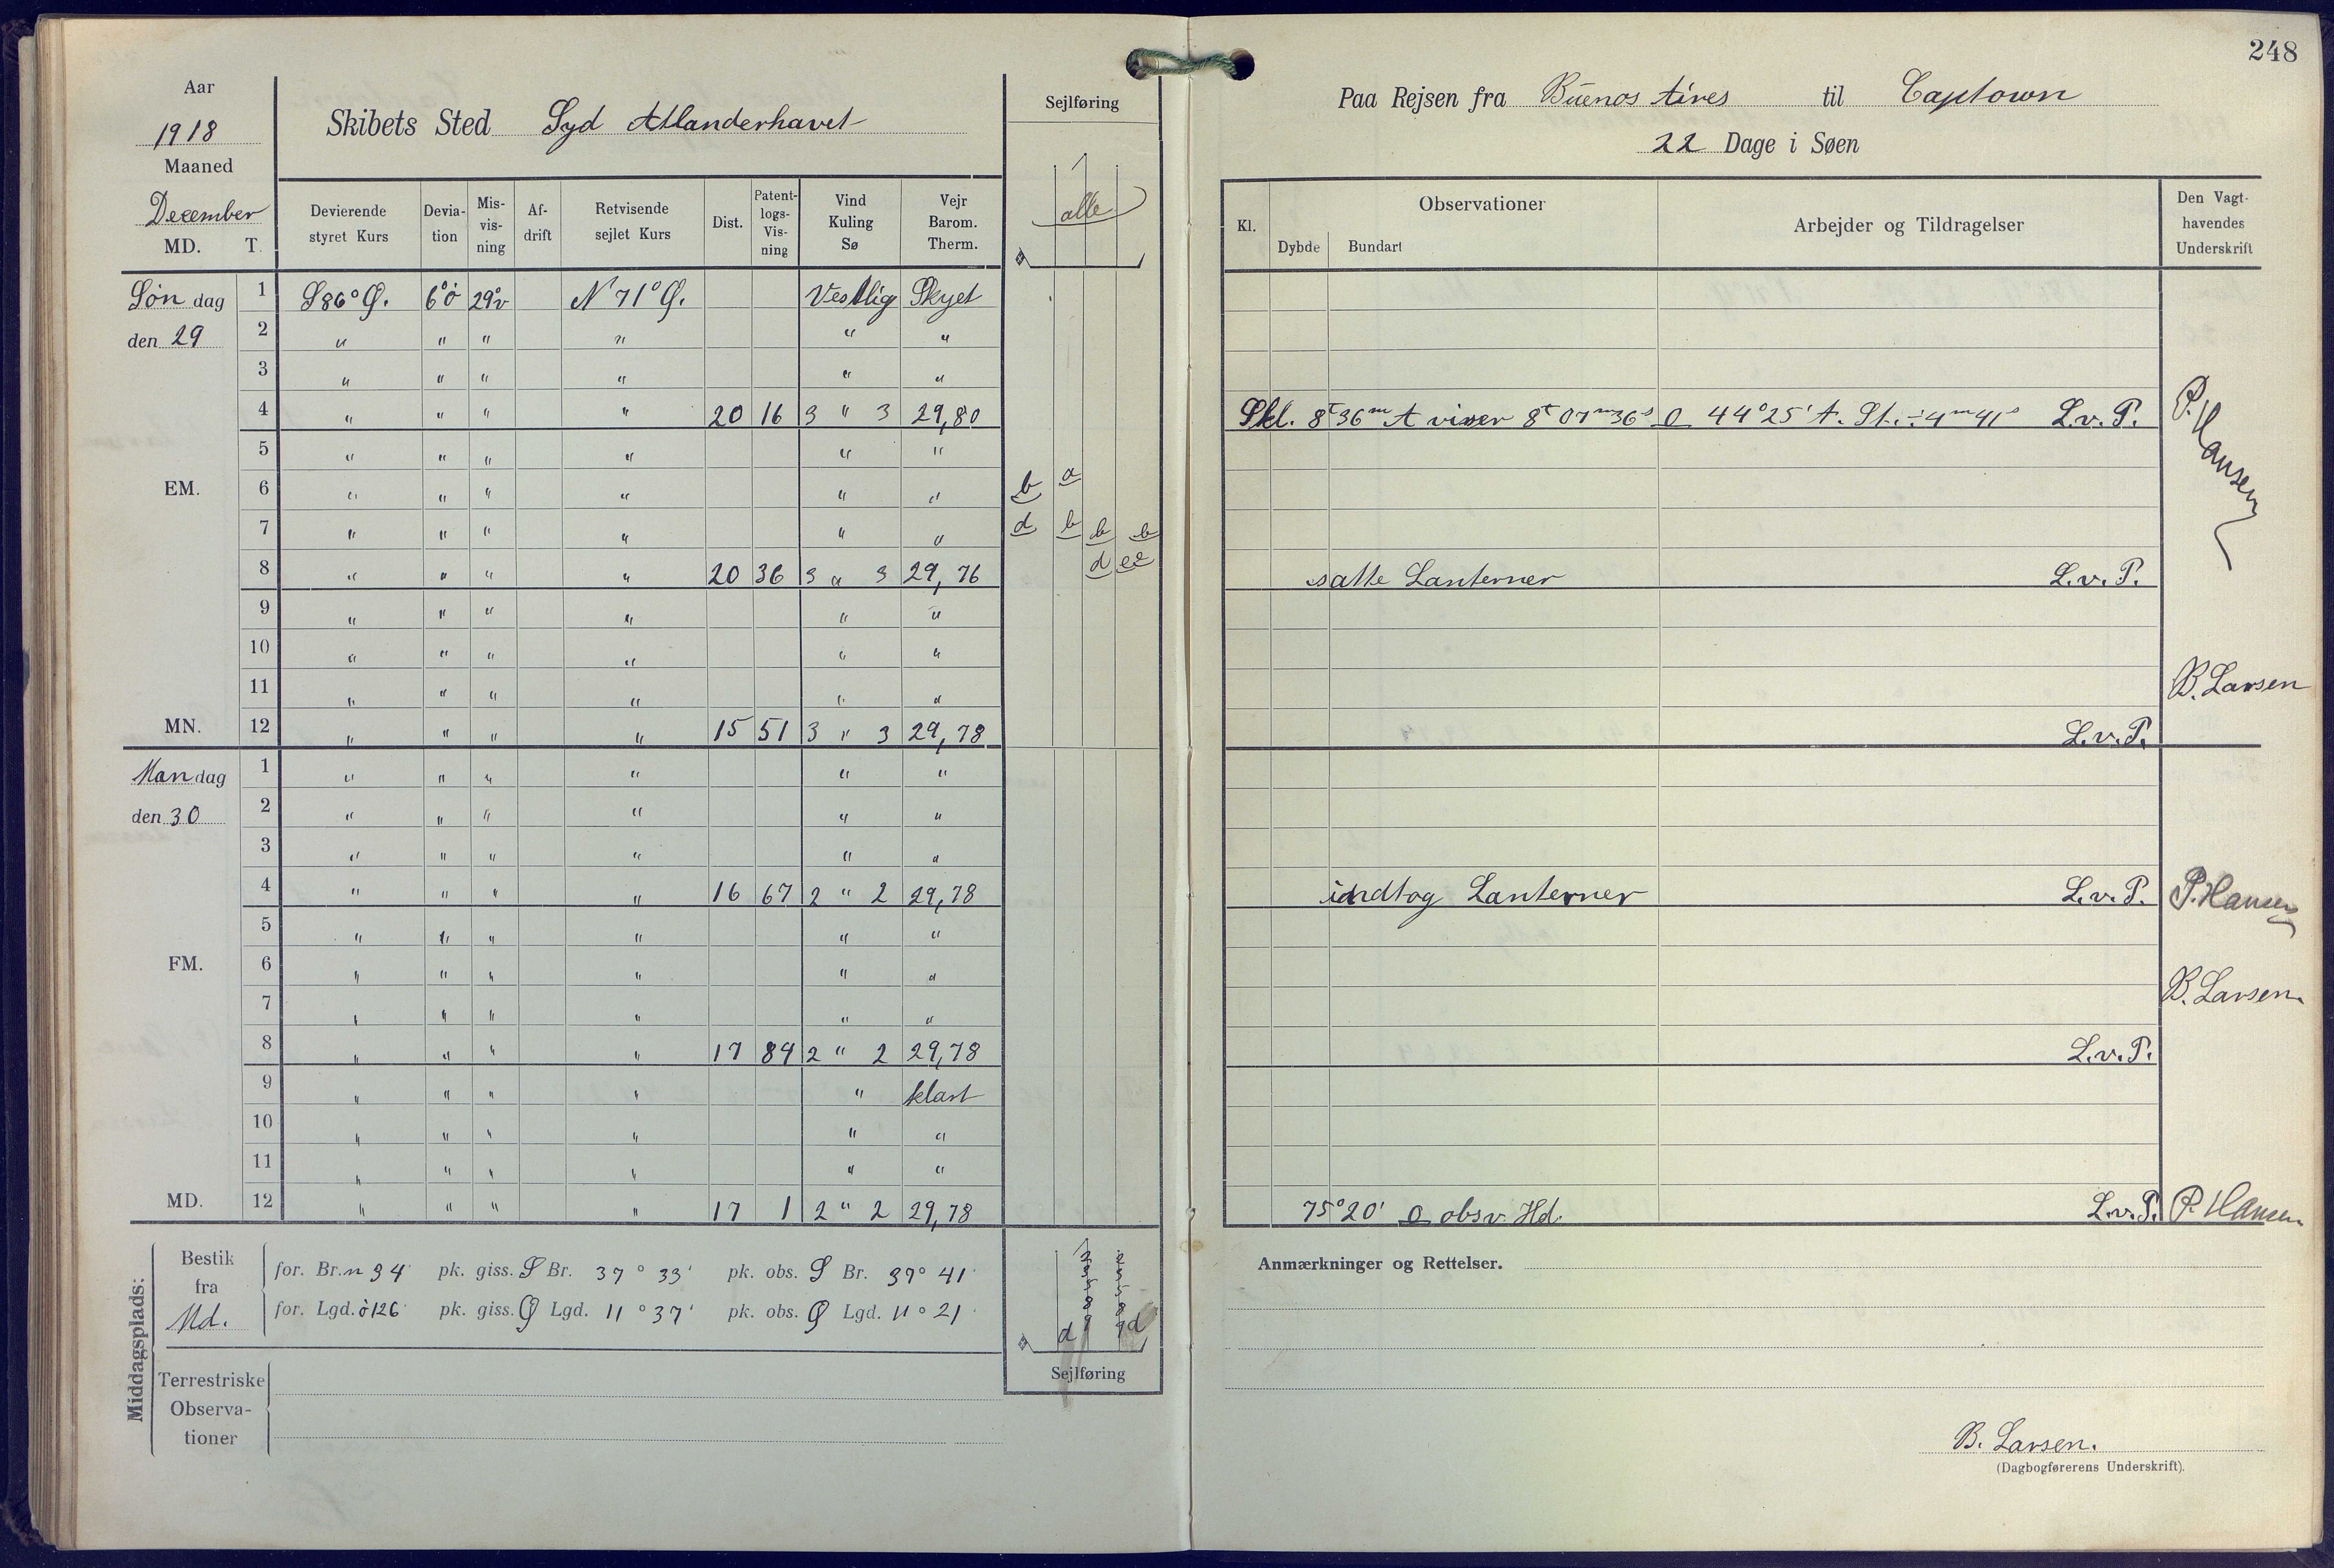 248
Aar
1918
Maaned
December
MD. T.
Skibets Sted Syd Atlanderhavet
Sejlføring
Paa Rejsen fra Buenos Aires til Captown
22 Dage i Søen
Devierende styret Kurs
Devia-tion
Mis-vis-ning
Af-drift
Retvisende sejlet Kurs
Dist.
Patent-logs-Vis-ning
Vind Kuling Sø
Vejr Barom. Therm.
alle
Kl.
Observationer
Dybde Bundart
Arbejder og Tildragelser
Den Vagt-havendes Underskrift
Søndag 1 S86° Ø. 6°ö 29°v N 71° Ø. Vestlig Skyet
den 29 2 " " " " " "
3 " " " " " "
4 " " " " 20 16 3 " 3 29,80 Skl. 8t 36m A viser 8t 07m 36s O 44°25' A. St. ÷ 4m 41s L.v.P. P. Hansen
5 " " " " " "
EM. 6 " " " " " " b a
7 " " " " " " d b b b
8 " " " " 20 36 3 " 3 29,76 d ee satte Lanterner L.v.P.
9 " " " " " "
10 " " " " " "
11 " " " " " " B. Larsen
MN. 12 " " " " 15 51 3 " 3 29,78 L.v.P.
Mandag 1 " " " " " "
den 30 2 " " " " " "
3 " " " " " "
4 " " " " 16 67 2 " 2 29,78 indtog Lanterner L.v.P. P. Hansen
5 " " " " " "
FM. 6 " " " " " "
7 " " " " " " B. Larsen.
8 " " " " 17 84 2 " 2 29,78 L.v.P.
9 " " " " " klart
10 " " " " " "
11 " " " " " "
MD. 12 " " " " 17 1 2 " 2 29,78 75°20' O obsv. Hd. L.v.P. P. Hansen
Middagsplads:
Bestik fra Md.
for. Br. n 34' pk. giss. S Br. 37° 33' pk. obs. S Br. 37° 41'
for. Lgd. ö 126' pk. giss. Ø Lgd. 11° 37' pk. obs. Ø Lgd. 11° 21'
d d
Sejlføring
Terrestriske Observa-tioner
Anmærkninger og Rettelser.
B. Larsen.
(Dagbogførerens Underskrift).